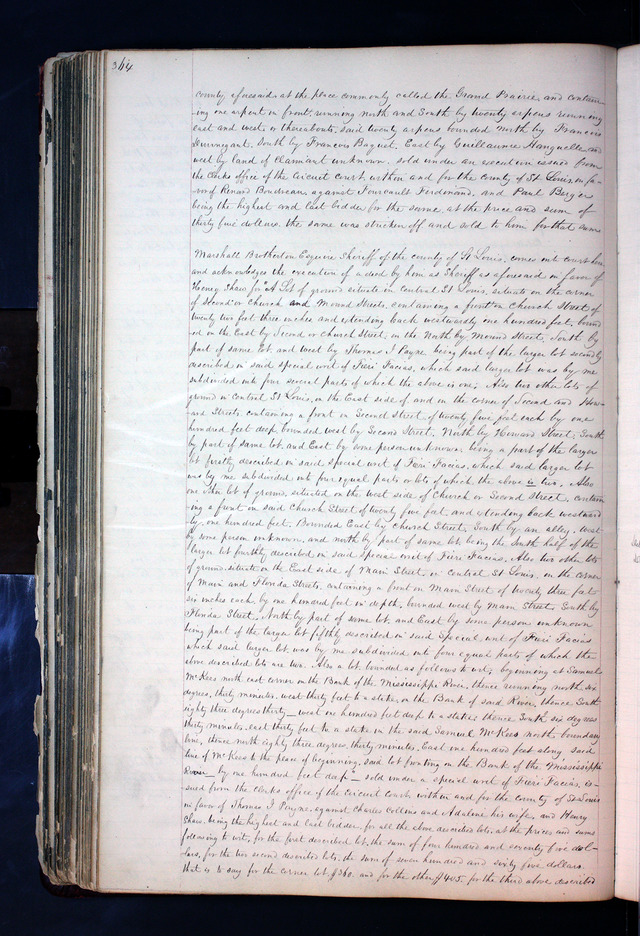 364
county aforesaid at the place commonly called the Grand Prairie, and contain
ing one arpent in front, running north and South by twenty arpens running
east and west, or thereabouts, said twenty arpens bounded North by Francois
South by Francois Baguet, East by Guillaumee and
west by land of Claimant unknown. sold under an execution issued from
the clerks office of the circuit court within and for the county of St Louis, in fa
vor of Renard Boudreau against Ferdinand, and Paul
being the highest and last bidder for the same, at the price and sum of
thirty five dollars, the same was stricken off and sold to him for that sum
Marshall Brotherton Esquire Sheriff of the county of St Louis, comes into court here
and acknowledges the execution of a deed by him as Sheriff as aforesaid in favor of
Henry Shaw for A Lot of ground situate in Central St Louis, situate on the corner
of Second or Church and Mound Streets, containing a front on Church Street of
twenty two feet three inches and extending back westwardly one hundred feet, bound
ed on the East by Second or Church Street, on the North by Mound Street, South by
part of same lot, and west by Thomas J Payne being part of the larger lot secondly
described in said special writ of Fieri Facias, which said larger lot was by me
subdivided into four several parts of which the above is one; Also two other lots of
ground in Central St Louis, on the East side of and on the corner of Second and How
ard Streets, containing a front on Second Street of twenty five feet each by one
hundred feet deep, bounded west by Second Street, North by Howard Street, South
by part of same lot, and East by some person unknown, being a part of the larger
lot firstly described in said special writ of Fieri Facias, which said larger lot
was by me subdivided into four equal parts or lots of which the above is two, Also
one other lot of ground, situated on the west side of Church or Second Street, contain
ing a front on said Church Street of twenty five feet and extending back westward
ly one hundred feet. Bounded East by Church Street, South by an alley, west
by some person unknown, and north by part of same lot, being the South half of the
larger lot fourthly described in said Special writ of Fieri Facias. Also two other lots
of ground situate on the East side of Main Street in central St Louis, on the corner
of Main and Florida Streets, containing a front on Main Street of twenty three feet
six inches each, by one hundred feet in depth, bounded west by Main Street, South by
Florida Street, North by part of same lot, and East by some person unknown
being part of the larger lot fifthly described in said Special writ of Fieri Facias
which said larger lot was by me subdivided into four equal parts of which the
above described lots are two. Also a lot bounded as follows to wit, beginning at Samuel
McKees north east corner on the Bank of the Mississippi River, thence running north six
degrees, thirty minutes, west thirty feet to a stake, on the Bank of said River, thence South
eighty three degrees thirty – west one hundred feet deep to a stake thence South six degrees
thirty minutes, east thirty feet to a stake in the said Samuel McKees north boundary
line, thence north eighty three degrees, thirty minutes, East one hundred feet along said
line of McKees to the place of beginning, said lot fronting on the Bank of the Mississippi
River by one hundred feet deep – sold under a special writ of Fieri Facias, is-
sued from the clerks office of the circuit court within and for the county of St Louis
in favor of Thomas J Payne, against Charles Collins and Adaline his wife, and Henry
Shaw, being the highest and last bidder, for all the above described lots, at the prices and sums
following to wit, for the first described lot, the sum of four hundred and seventy five dol-
lars, for the two second described lots, the sum of seven hundred and sixty five dollars
that is to say for the corner lot, $360. and for the other $405. for the third above described